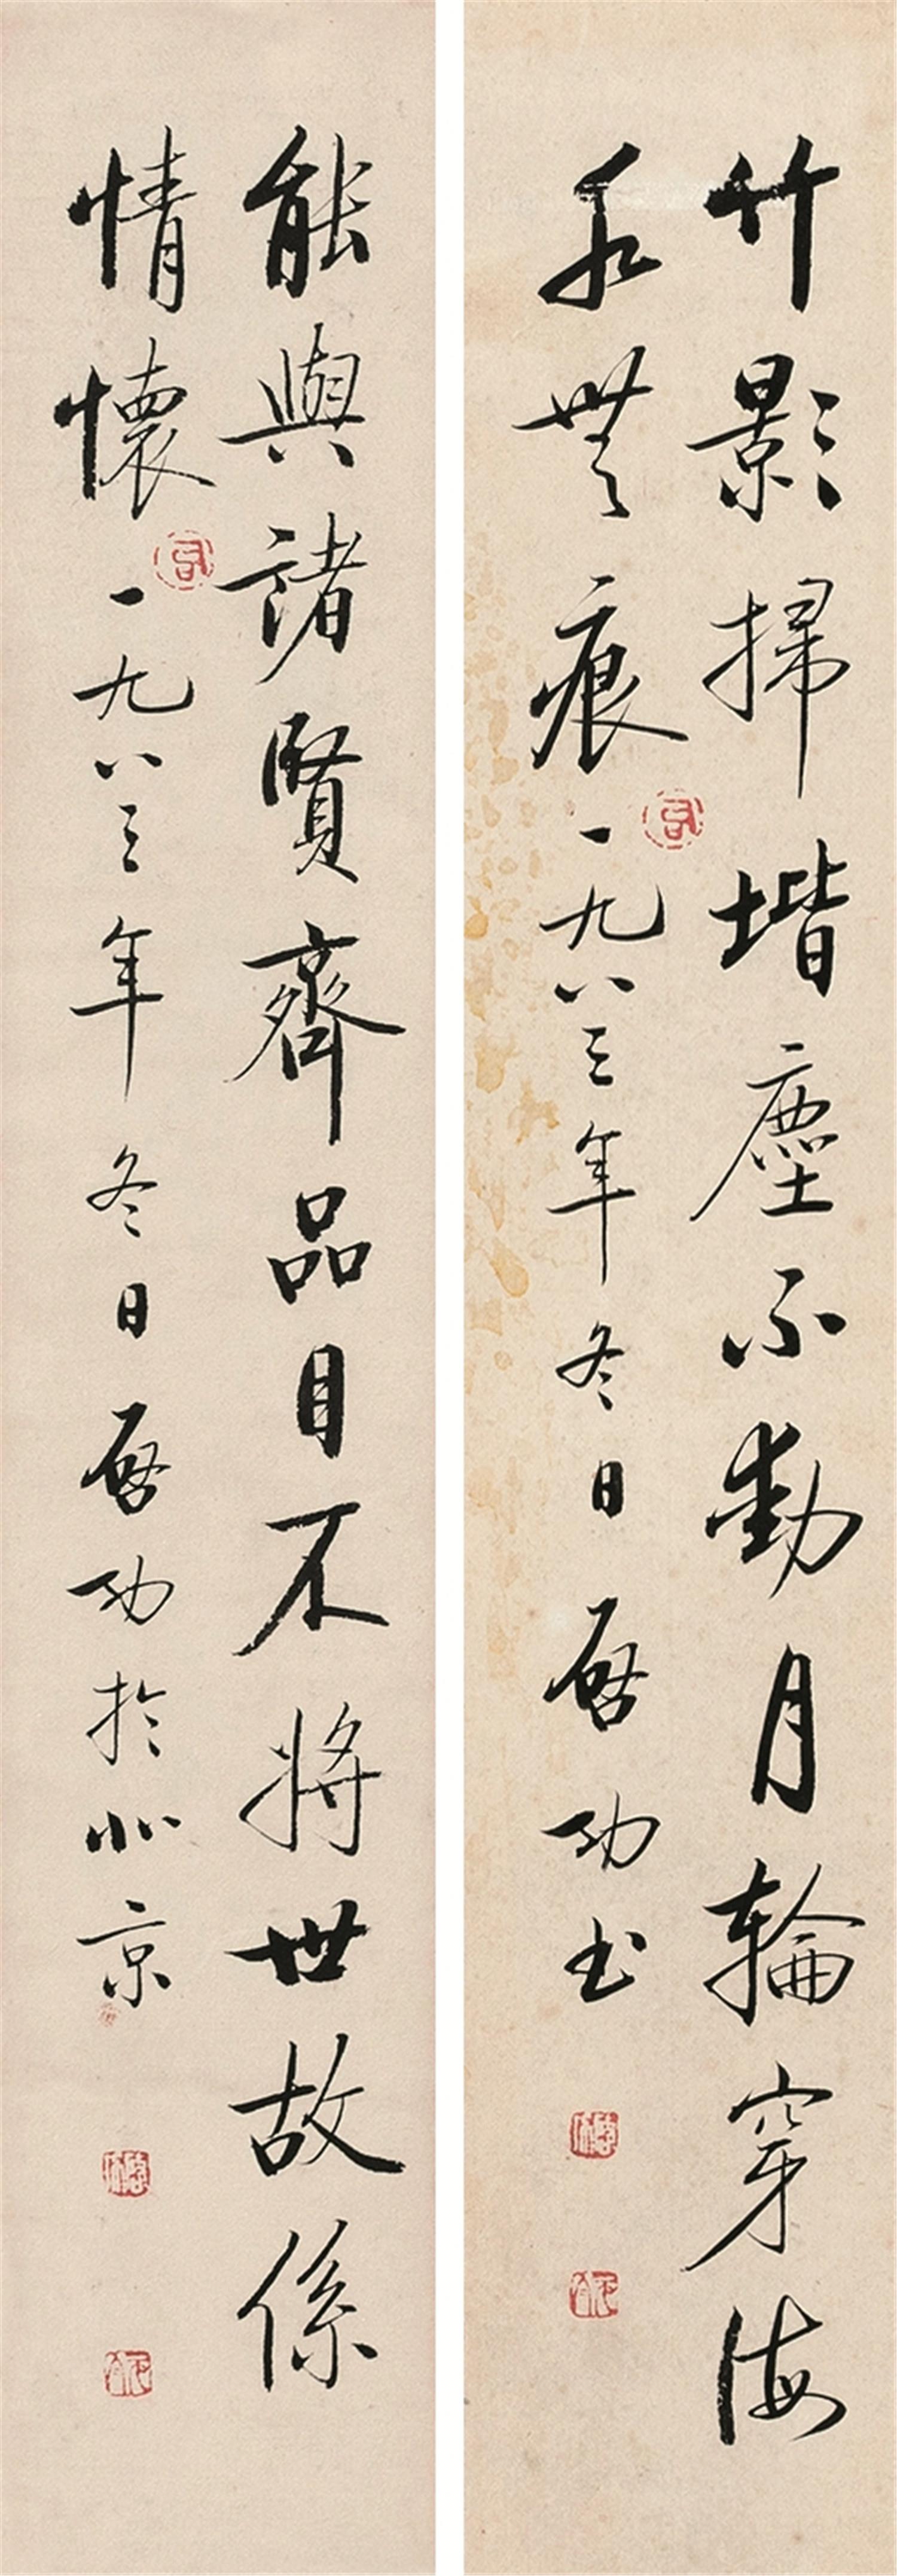 竹影掃堦塵不動月輪穿海
水無痕 一九八三年冬日 啟功書
能與諸賢齊品目不將世故係
情懷 一九八三年冬日 啟功於北京